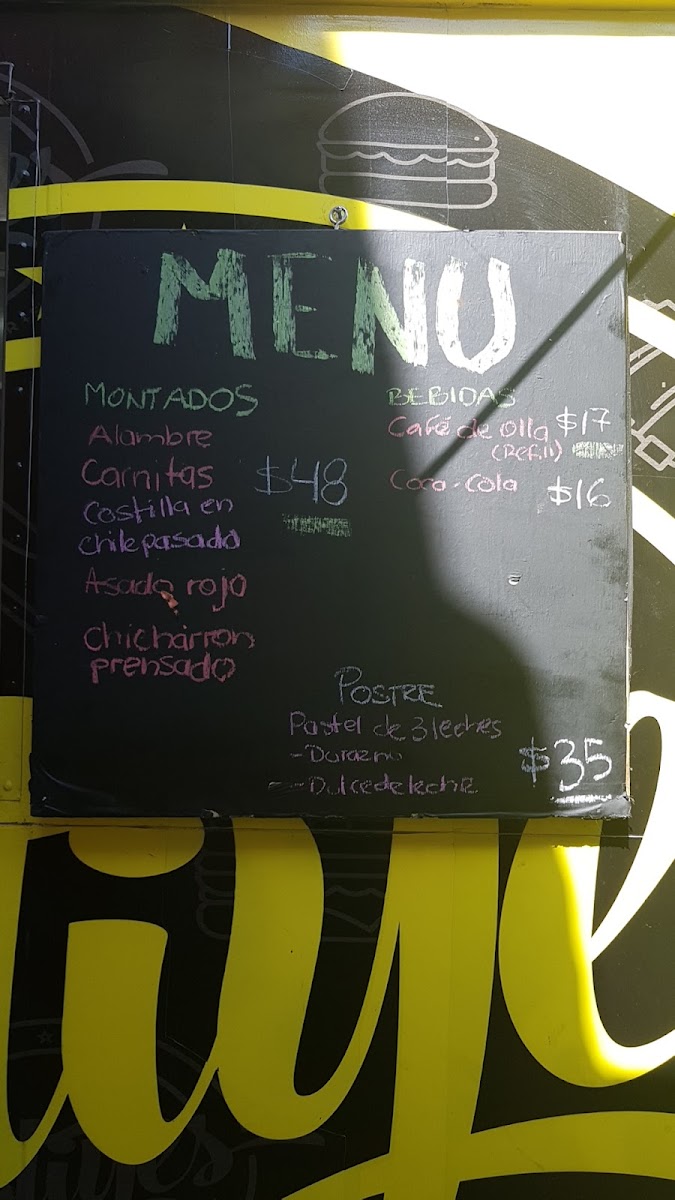 MENU
MONTADOS
Alambre
Carnitas
Costilla en
chile pasado
$48
Asado rojo
Chicharron
prensado
BEBIDAS
Café de olla $17
(Refill)
Coca-Cola $16
POSTRE
Pastel de 3 leches
- Durazno
- Dulce de leche
$35